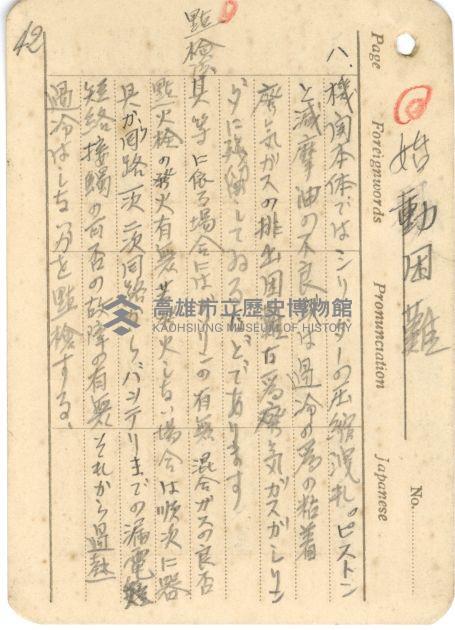 No.
始動困難
Page Foreignwords Pronunciation Japanese
八、機関本体ではシリンダーの圧縮洩れ。ピストン
と減摩油の不良又は過冷の為の粘着
廃気ガスの排出困難な為廃気ガスがシリン
ダに残留してゐるなどであります
點檢
其等に依る場合にはガソリンの有無混合ガスの良否
點火栓の発火有無発火しない場合は順次に器
具が回路一次二次回路からバッテリまでの漏電
短絡接觸の可否の故障の有無それから過熱
過冷はしな
を點檢する、
42
高雄市立歷史博物館
KAOHSIUNG MUSEUM OF HISTORY